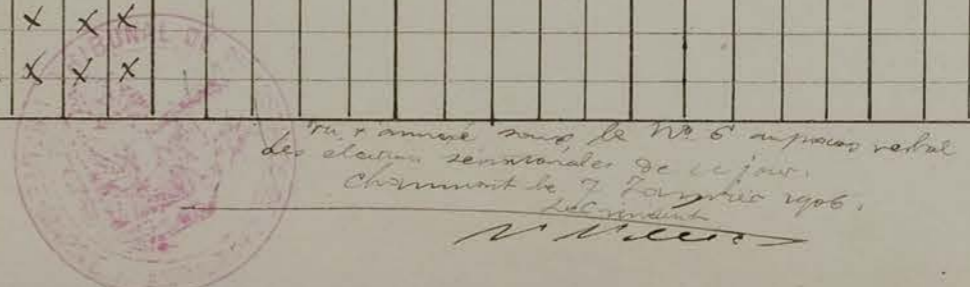 X X X
X X X
TRIBUNAL DE
Vu & annexé sous le No 6 au procès verbal
des élections sénatoriales de ce jour.
Chaumont le 7 Janvier 1906.
Le Président